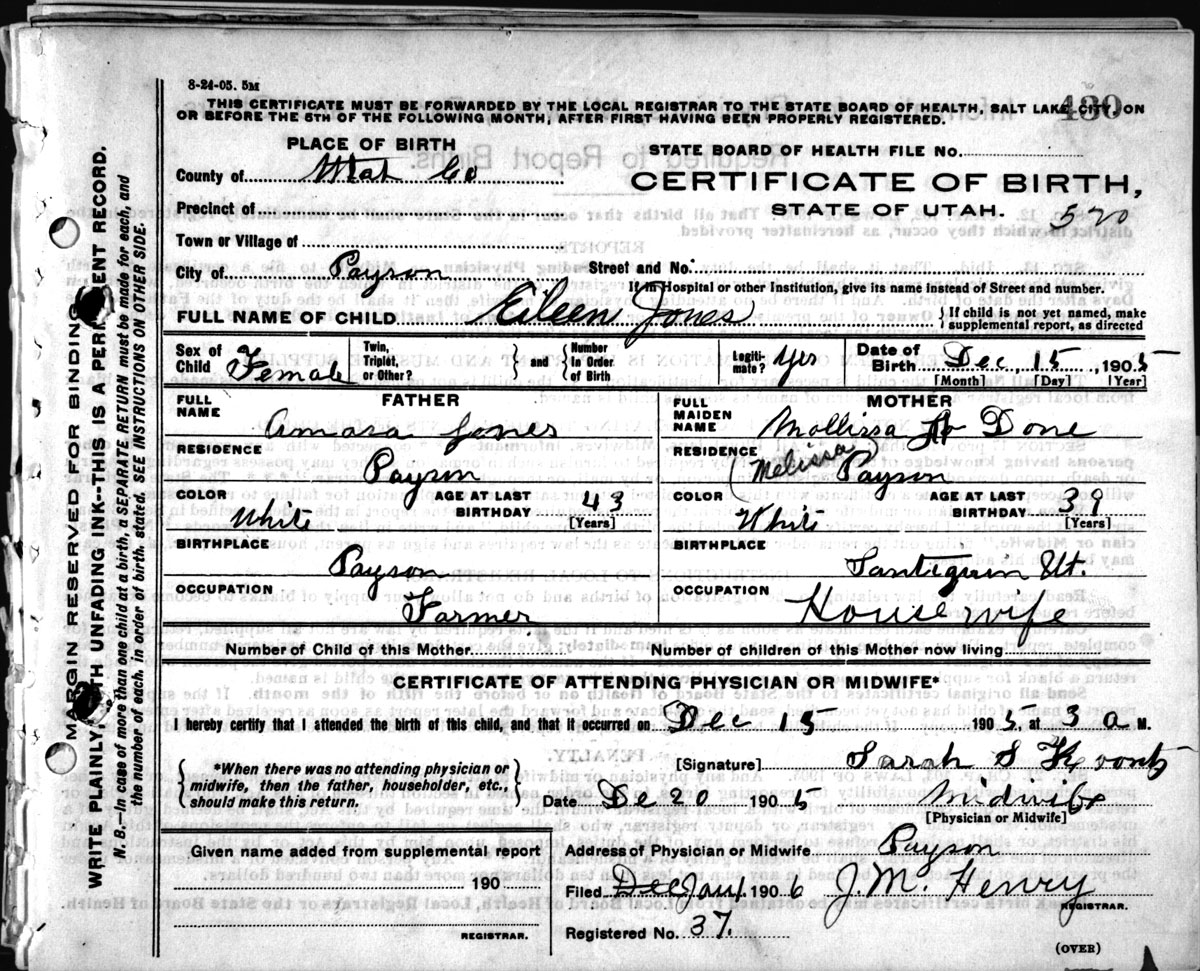 8-24-05. 5M
430
THIS CERTIFICATE MUST BE FORWARDED BY THE LOCAL REGISTRAR TO THE STATE BOARD OF HEALTH, SALT LAKE CITY, ON
OR BEFORE THE 5TH OF THE FOLLOWING MONTH, AFTER FIRST HAVING BEEN PROPERLY REGISTERED.
PLACE OF BIRTH
STATE BOARD OF HEALTH FILE No.
County of Utah Co
CERTIFICATE OF BIRTH,
Precinct of
STATE OF UTAH. 520
Town or Village of
City of Payson Street and No.
If in Hospital or other Institution, give its name instead of Street and number.
FULL NAME OF CHILD Eileen Jones { If child is not yet named, make
supplemental report, as directed
Sex of Child Female Twin, Triplet, or Other? } and { Number In Order of Birth Legiti-mate? Yes Date of Birth Dec, 15, 1905
[Month] [Day] [Year]
FATHER
FULL NAME Amasa Jones
RESIDENCE
Payson
COLOR White AGE AT LAST BIRTHDAY 43
[Years]
BIRTHPLACE
Payson
OCCUPATION
Farmer
MOTHER
FULL MAIDEN NAME Mollissa Done
RESIDENCE (Melissa) Payson
COLOR White AGE AT LAST BIRTHDAY 39
[Years]
BIRTHPLACE
Santiquin Ut.
OCCUPATION
House wife
Number of Child of this Mother Number of children of this Mother now living
CERTIFICATE OF ATTENDING PHYSICIAN OR MIDWIFE*
I hereby certify that I attended the birth of this child, and that it occurred on Dec 15 1905, at 3 a M.
{ *When there was no attending physician or
midwife, then the father, householder, etc.,
should make this return. }
[Signature] Sarah S Koontz
Date De 20 1905 Midwife
[Physician or Midwife]
Given name added from supplemental report
190
REGISTRAR.
Address of Physician or Midwife Payson
Filed Dec Jany 1906 J. M. Henry
REGISTRAR.
Registered No. 37.
(OVER)
MARGIN RESERVED FOR BINDING
WRITE PLAINLY WITH UNFADING INK--THIS IS A PERMANENT RECORD.
N. B.--In case of more than one child at a birth, a SEPARATE RETURN must be made for each, and
the number of each, in order of birth, stated. SEE INSTRUCTIONS ON OTHER SIDE.